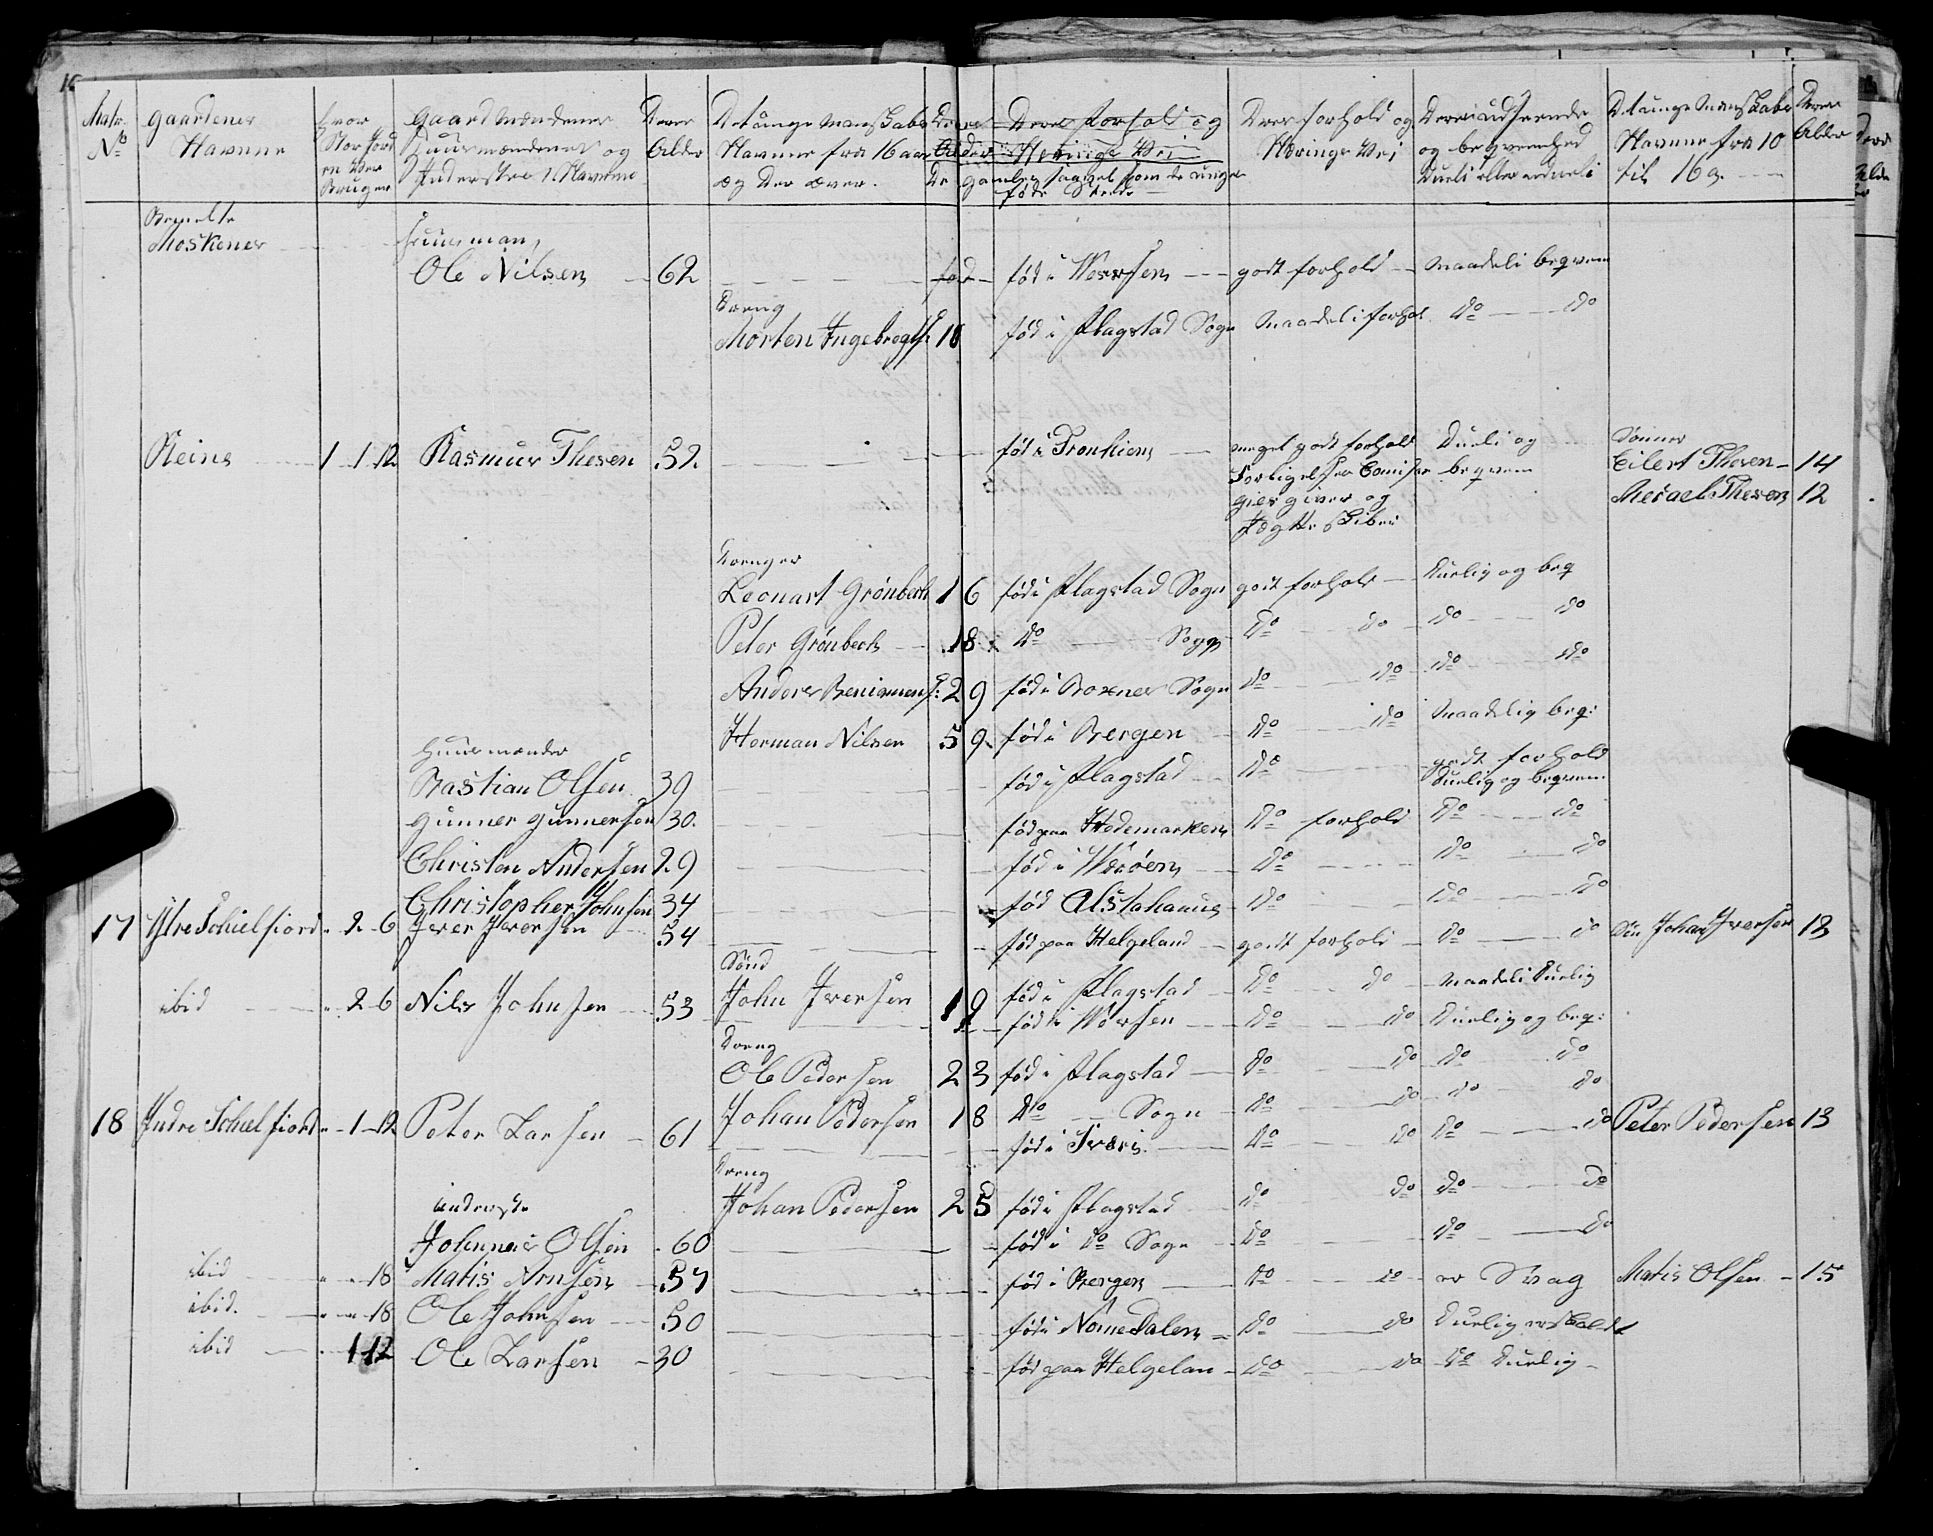 Matr. No
Gaardenes Navnne
hvor Stor Jord en Hver Bruger
Gaard Mændenes Huusmændenes og Inderster Navnne
Deres Alder
De unge Mandskabs Navnne fra 16 aar og Der over.
Deres Alder
Deres Forhold og Nerings Vei
De gamles saavel som de unges føde Stæde
Deres forhold og Nærings Vei
Deres udseende og beqvemhed Dueli eller udueli
De unge Manskabs Navnne fra 10 til 16 a.
Deres Alder
Bemelte
Moskenes Huusman,
Ole Nilsen 62 fød i Werfsen godt forhold Maadeli beqvem
Dreng
Morten Ingebregts: 18 fød i Flagstad Sogn Maadeli forhol do do
Reine 1-1-12 Rasmus Thesen 52 fød i Tronhiem meget godt forhold Dueli og Sønner
Forligelses Comiser beqvem Eilert Thesen 14
giestgiver og Mesael Thesen 12
Jægtte skiber
Drenger
Leonart Grønbech 16 fød i Flagstad Sogn godt forhold Duelig og beq
Peter Grønbech 18 do Sogn do do do do
Anders Beniamens: 29 fød i Boxnes Sogn do do do do
Herman Nilsen 59 fød i Bergen do do Maadelig beq:
Huusmænder godt forhold
Bastian Olsen 39 fød i Flagstad do Duelig og beqvem
Gunner Gunnersen 30. fød paa Hedemarken do forhold do do
Christen Andersen 29 fød i Werøen do do do
Christopher Johnsen 34 fød Alstahaug do do do
17 Ytre Schielfiord 2-6 Iver Iversen 54 fød paa Helgeland godt forhold do do Søn Johan Iversen 13
Sønd
John Iversen 19 fød i Flagstad do do Maadeli Duelig
ibid 2-6 Nils Johnsen 53 fød i Wefsen do do Duelig og beq:
Dreng
Ole Pedersen 23 fød i Flagstad do do do do
Johan Pedersen 18 do Sogn do do do do
18 Indre Schielfiord 1-12 Peter Larsen 61 fød i Sværi do do do do Peter Pedersen 13
Dreng
Johan Pedersen 25 fød i Flagstad do do do do
Inderste
Johannes Olsen 60 fød i do Sogn do do do
ibid 18 Matis Arnsen 57 fød i Bergen do do er Svag Matis Olsen 15
ibid. 18 Ole Johnsen 50 fød i Nomedalen do do Duelig
ibid 1-12 Ole Larsen 30 fød paa Helgelan do do do Duelig